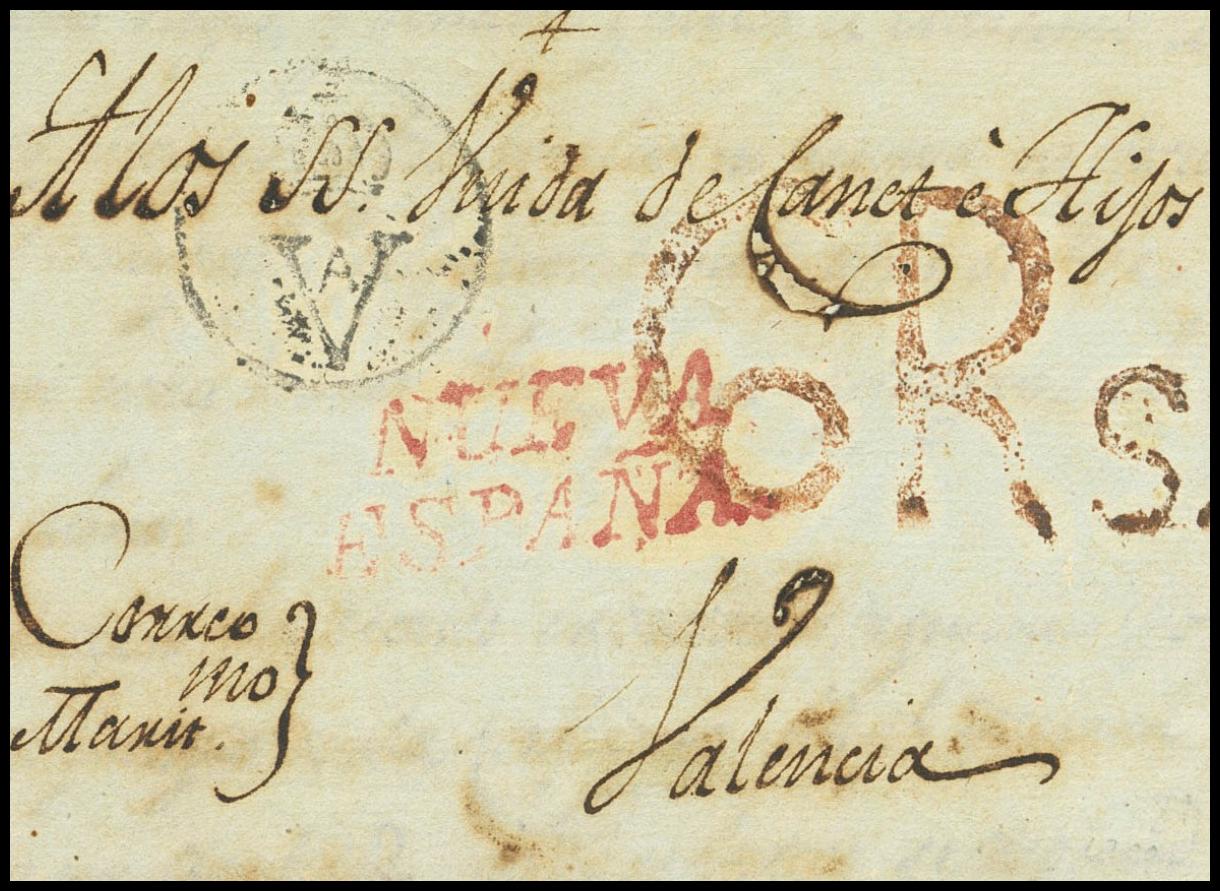 A los SS. Viuda de Canet è Hijos
VA
NUEVA
ESPAÑA.
6 Rs.
Correo
Marit.mo
Valencia